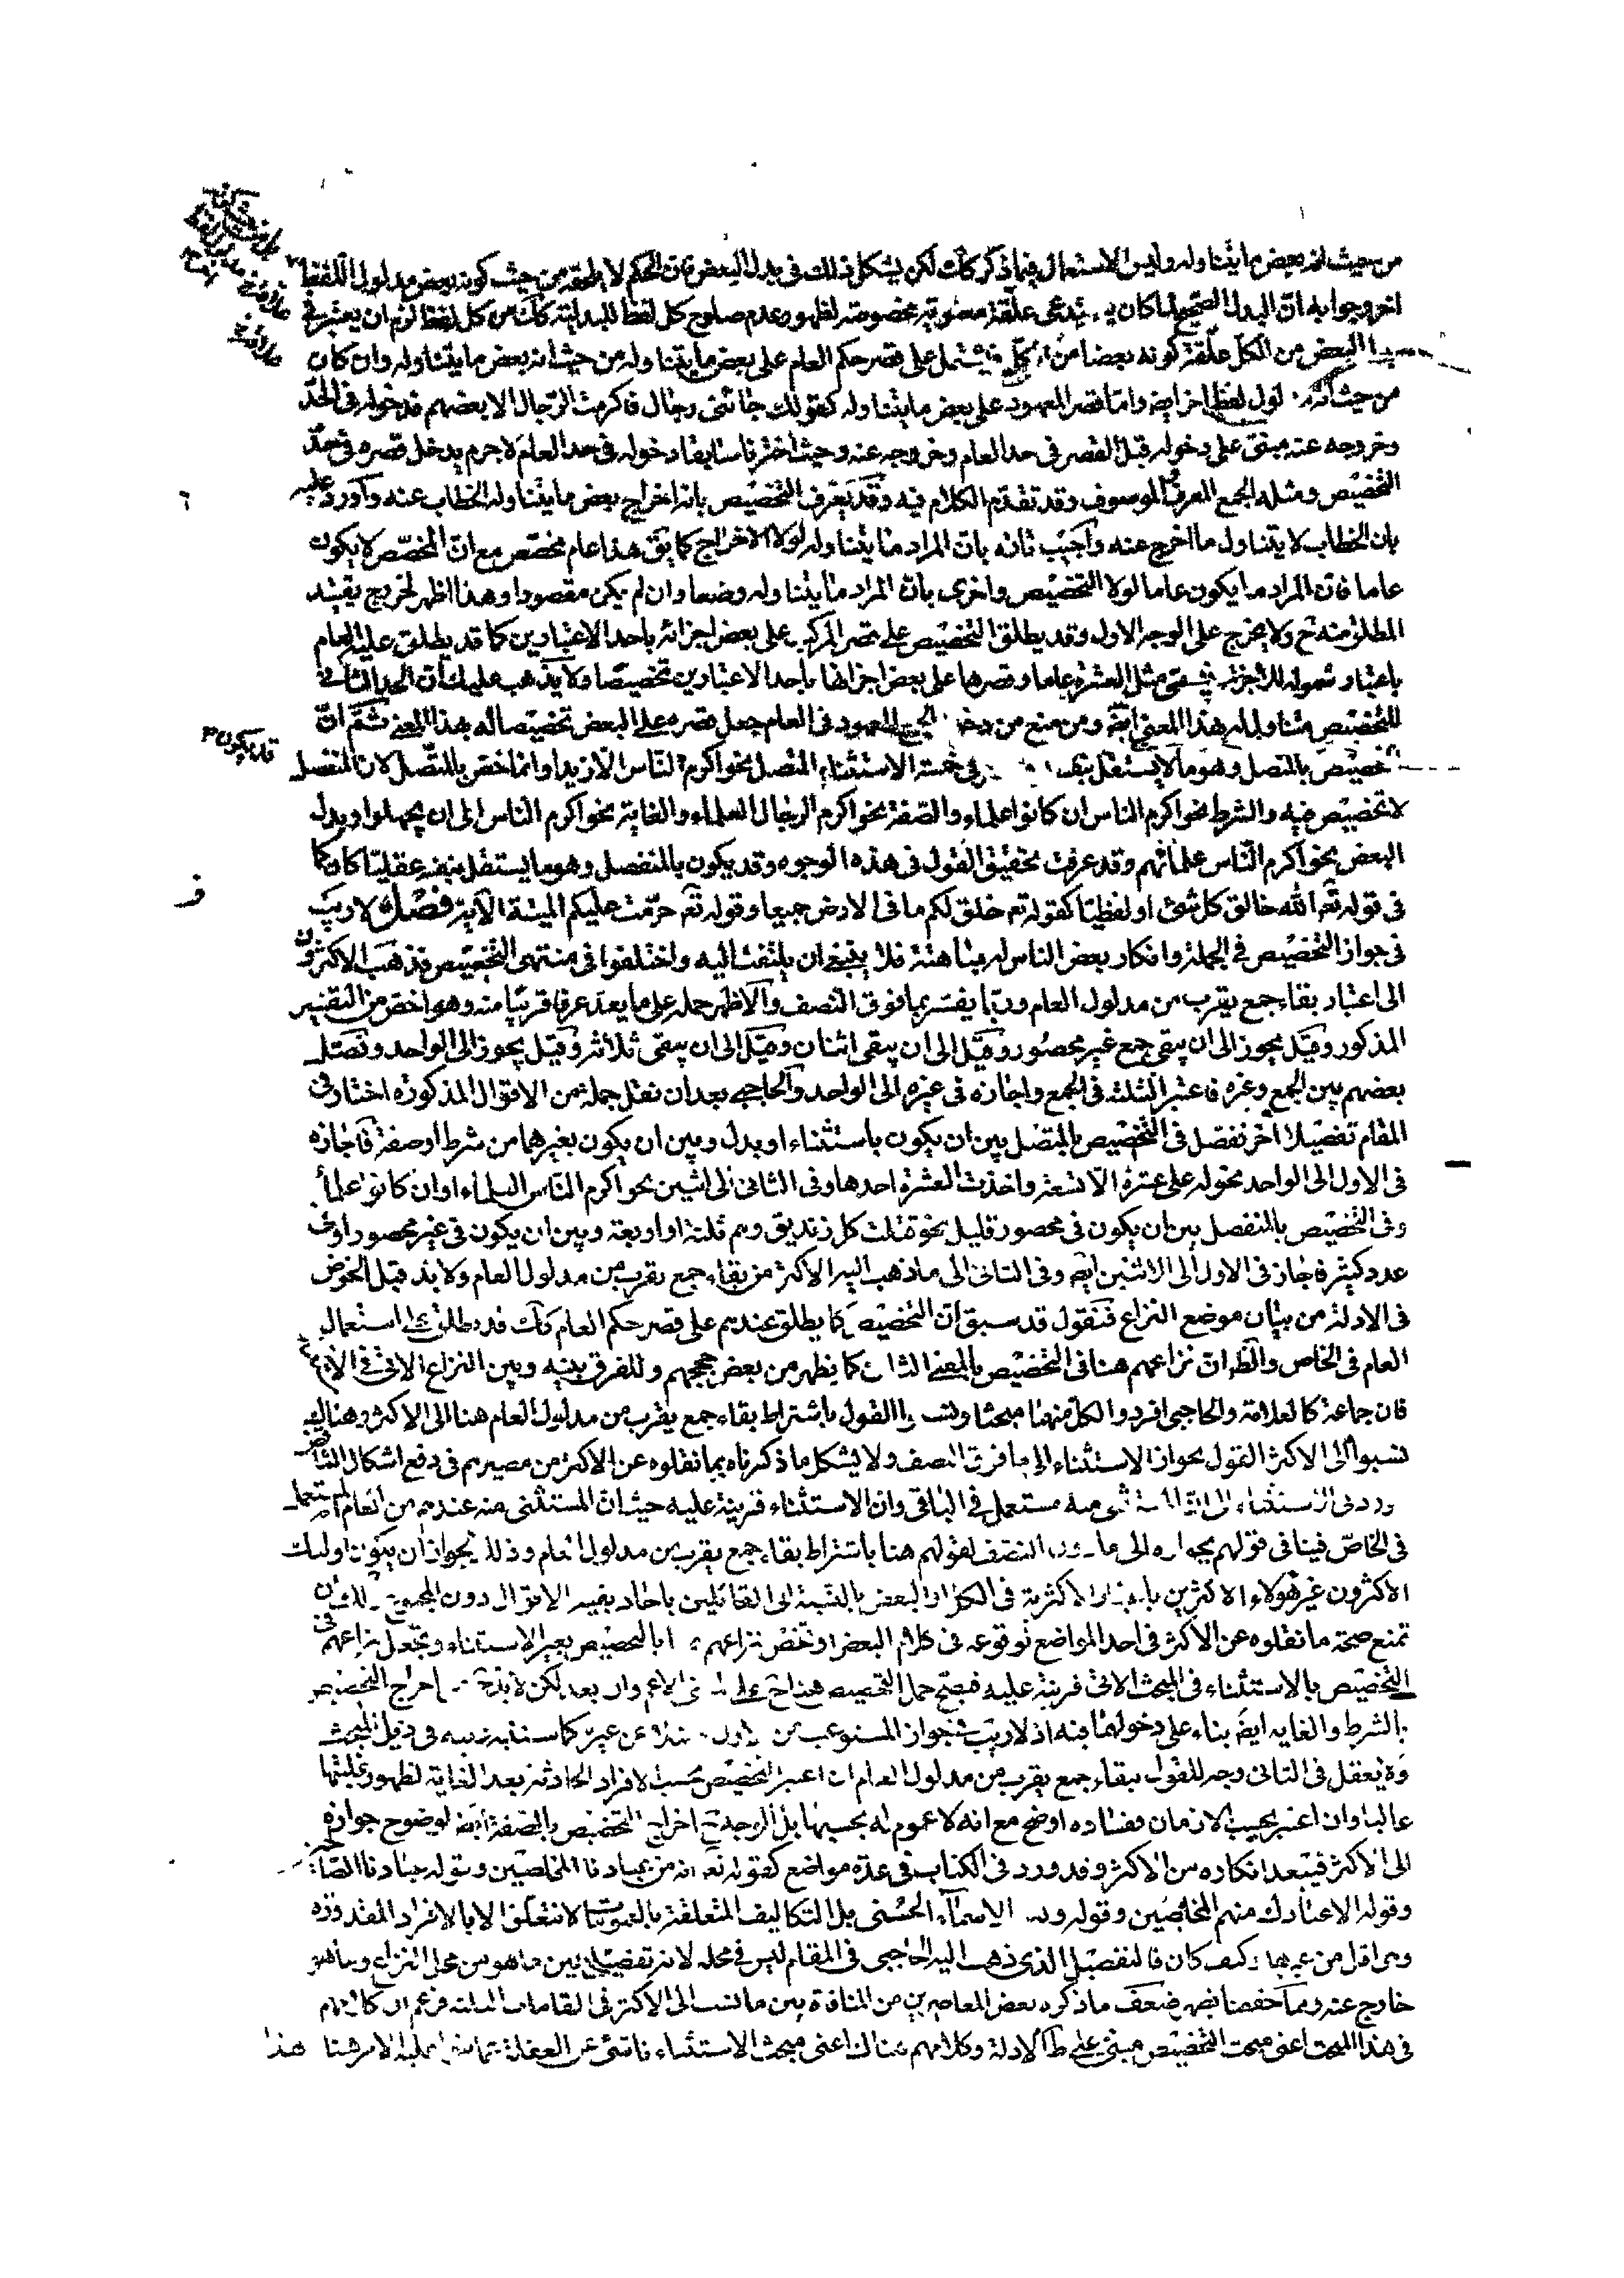 من حيث انه بعض ما يتناوله وليس الاستعمال فيما ذكر كك لكن يشكل ذلك في بدل البعض فان الحكم لا يلحقه من حيث كونه بعض مدلول اللفظ
اخر وجوابه ان البدل الصحيح لما كان يستدعى علقة معنوية مخصوصة لظهور عدم صلوح كل لفظ للبدلية كك من كل لفظ لزم ان يعتبر في
بدل البعض من الكل علقة كونه بعضا من الكل فيشتمل على قصر حكم العام على بعض ما يتناوله من حيث انه بعض ما يتناوله وان كان
من حيث انه مدلول لفظ اخر ايضا واما قصر المعهود على بعض ما يتناوله كقولك جائنى رجال فاكرمت الرجال الا بعضهم فدخوله في الحد
وخروجه عنه مبنى على دخوله قبل القصر في حد العام وخروجه عنه وحيث اخترنا سابقا دخوله في حد العام لا جرم يدخل قصره في حد
التخصيص ومثله الجمع المعرف الموصوف وقد تقدم الكلام فيه وقد يعرف التخصيص بانه اخراج بعض ما يتناوله الخطاب عنه واورد عليه
بان الخطاب لا يتناول ما اخرج عنه واجيب تارة بان المراد ما يتناوله لولا الاخراج كما يق هذا عام مخصص مع ان المخصص لا يكون
عاما فان المراد ما يكون عاما لولا التخصيص واخرى بان المراد ما يتناوله وضعا وان لم يكن مقصودا وهذا اظهر لخروج تقييد
المطلق منه ح ولا يخرج على الوجه الاول وقد يطلق التخصيص على قصر المركب على بعض اجزائه باحد الاعتبارين كما قد يطلق عليه العام
باعتبار شموله للاجزاء فيسمى مثل العشرة عاما وقصرها على بعض اجزائها باحد الاعتبارين تخصيصا ولا يذهب عليك ان الحد الثاني
للتخصيص متناول له بهذا المعنى ايضا ومن منع من دخول الجمع المعهود في العام جعل قصره على البعض تخصيصا له بهذا المعنى ثم ان
التخصيص بالمتصل وهو ما لا يستقل بنفسه خمسة الاستثناء المتصل نحو اكرم الناس الا زيدا وانما خص بالمتصل لان المنفصل
لا تخصيص فيه والشرط نحو اكرم الناس ان كانوا علماء والصفة نحو اكرم الرجال العلماء والغاية نحو اكرم الناس الى ان يجهلوا وبدل
البعض نحو اكرم الناس علمائهم وقد عرفت تحقيق القول في هذه الوجوه وقد يكون بالمنفصل وهو ما يستقل بنفسه عقليا كان كما
قد يكون
في قوله تعم الله خالق كل شئ او لفظيا كقوله تم خلق لكم ما في الارض جميعا وقوله تعم حرمت عليكم الميتة الآية فصل لا ريب
في جواز التخصيص في الجملة وانكار بعض الناس له مباهتة فلا ينبغي ان يلتفت اليه واختلفوا في منتهى التخصيص فذهب الاكثرون
الى اعتبار بقاء جمع يقرب من مدلول العام وربما يفسر بما فوق النصف والاظهر حمله على ما يعد عرفا قريبا منه وهو اخص من التفسير
المذكور وقيل يجوز الى ان يبقى جمع غير محصور وقيل الى ان يبقى اثنان وقيل الى ان يبقى ثلاثة وقيل يجوز الى الواحد وفصل
بعضهم بين الجمع وغيره فاعتبر الثلثة في الجمع واجازه في غيره الى الواحد والحاجبي بعد ان نقل جملة من الاقوال المذكورة اختار في
المقام تفصيلا اخر ففصل في التخصيص بالمتصل بين ان يكون باستثناء او بدل وبين ان يكون بغيرهما من شرط او صفة فاجازه
في الاول الى الواحد نحو له على عشرة الا تسعة واخذت العشرة احدها وفي الثاني الى اثنين نحو اكرم الناس العلماء او ان كانوا علماء
وفي التخصيص بالمنفصل بين ان يكون في محصور قليل نحو قتلت كل زنديق وهم ثلثة او اربعة وبين ان يكون في غير محصور او في
عدد كثير فاجاز في الاول الى الاثنين ايضا وفي الثاني الى ما ذهب اليه الاكثر من بقاء جمع يقرب من مدلول العام ولا بد قبل الخوض
في الادلة من بيان موضع النزاع فنقول قد سبق ان التخصيص كما يطلق عندهم على قصر حكم العام كك قد يطلق على استعمال
العام في الخاص والظ ان نزاعهم هنا في التخصيص بالمعنى الثاني كما يظهر من بعض حججهم وللفرق بينه وبين النزاع الاتي في الاستثناء
فان جماعة كالعلامة والحاجبي افردوا لكل منهما مبحثا ونسبوا القول باشتراط بقاء جمع يقرب من مدلول العام هنا الى الاكثر وهناك
نسبوا الى الاكثر القول بجواز الاستثناء الى ما فوق النصف ولا يشكل ما ذكرناه بما نقلوه عن الاكثر من مصيرهم في دفع اشكال التناقض
مستعمل في الباقي وان الاستثناء قرينة عليه حيث ان المستثنى منه عندهم من العام المستعمل
في الخاص فينافي قولهم بجوازه الى ما دون النصف لقولهم هنا باشتراط بقاء جمع يقرب من مدلول العام وذلك لجواز ان يكون اولئك
الاكثرون غير هؤلاء الاكثرين باعتبار الاكثرية في الكل او البعض بالنسبة الى القائلين باحاد بقية الاقوال دون المجموع
تمنع صحة ما نقلوه عن الاكثر في احد المواضع لوقوعه في كلام البعض او تخص نزاعهم هنا بالتخصيص بغير الاستثناء وتجعل نزاعهم في
التخصيص بالاستثناء في المبحث الاتي قرينة عليه فيصح حمل التخصيص هنا ح على الاعم وان بعد لكن لا بد ح من اخراج التخصيص
بالشرط والغاية ايضا بناء على دخولهما فيه اذ لا ريب في جواز المستوعب من الاول فضلا عن غيره كما سننبه عليه في ذيل المبحث
ولا يعقل في الثاني وجه للقول ببقاء جمع يقرب من مدلول العام ان اعتبر التخصيص بحسب الافراد الحادثة بعد الغاية لظهور غلبتها
غالبا وان اعتبر بحسب الازمان ففساده اوضح مع انه لا عموم له بحسبها بل الوجه ح اخراج التخصيص بالصفة ايضا لوضوح جوازه
الى الاكثر فيبعد انكاره من الاكثر وقد ورد في الكتاب في عدة مواضع كقوله تعم انه من عبادنا المخلصين وقوله عبادنا الصالحين
وقوله الا عبادك منهم المخلصين وقوله وله الاسماء الحسنى بل التكاليف المتعلقة بالعمومات لا تتعلق الا بالافراد المقدورة
وهى اقل من غيرها وكيف كان فالتفصيل الذي ذهب اليه الحاجبي في المقام ليس في محله لانه تفصيل بين ما هو من محل النزاع وما هو
خارج عنه ومما حققنا يظهر ضعف ما ذكره بعض المعاصرين من المنافاة بين ما نسب الى الاكثر في المقامات الثلثة فزعم ان كلامهم
في هذا المبحث اعنى مبحث التخصيص مبنى على ظ الادلة وكلامهم هناك اعنى مبحث الاستثناء ناشئ عن الغفلة عما بنوا عليه الامر هنا هذا